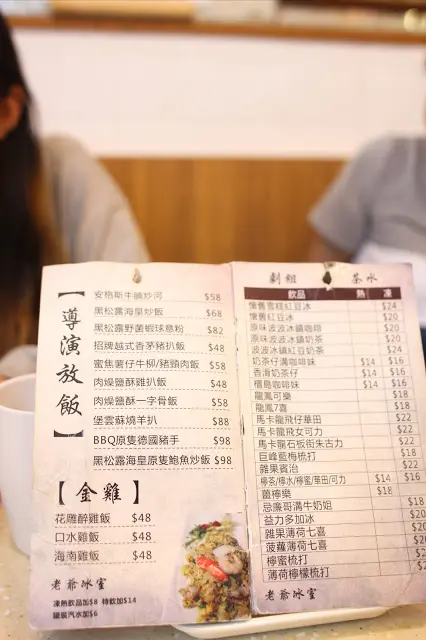 【導演放飯】
安格斯牛𦟌炒河 $58
黑松露海皇炒飯 $68
黑松露野菌蝦球意粉 $82
招牌越式香茅豬扒飯 $48
蜜焦薯仔牛柳/豬頸肉飯 $58
肉燥鹽酥雞扒飯 $48
肉燥鹽酥一字骨飯 $58
堡雲蘇燒羊扒 $88
BBQ原隻德國豬手 $98
黑松露海皇原隻鮑魚炒飯 $98
【金雞】
花雕醉雞飯 $48
口水雞飯 $48
海南雞飯 $48
老爺冰室
凍熱飲品加$8 特飲加$14
罐裝汽水加$6
劇組 茶水
飲品 熱 凍
懷舊雪糕紅豆冰 $24
懷舊紅豆冰 $20
原味波波冰鎮咖啡 $20
原味波波冰鎮奶茶 $20
波波冰鎮紅豆奶茶 $24
奶茶仔溝咖啡妹 $14 $16
香滑奶茶仔 $14 $16
檀島咖啡妹 $14 $16
龍鳳可樂 $18
龍鳳7喜 $18
馬卡龍飛仔華田 $22
馬卡龍飛女可力 $22
馬卡龍石板街朱古力 $22
巨峰藍梅梳打 $18
雜果賓治 $22
檸茶/檸水/檸蜜/華田/可力 $14 $16
薑檸樂 $18
忌廉哥溝牛奶姐 $18
益力多加冰 $20
雜果薄荷七喜 $20
菠蘿薄荷七喜
檸蜜梳打
薄荷檸檬梳打
老爺冰室